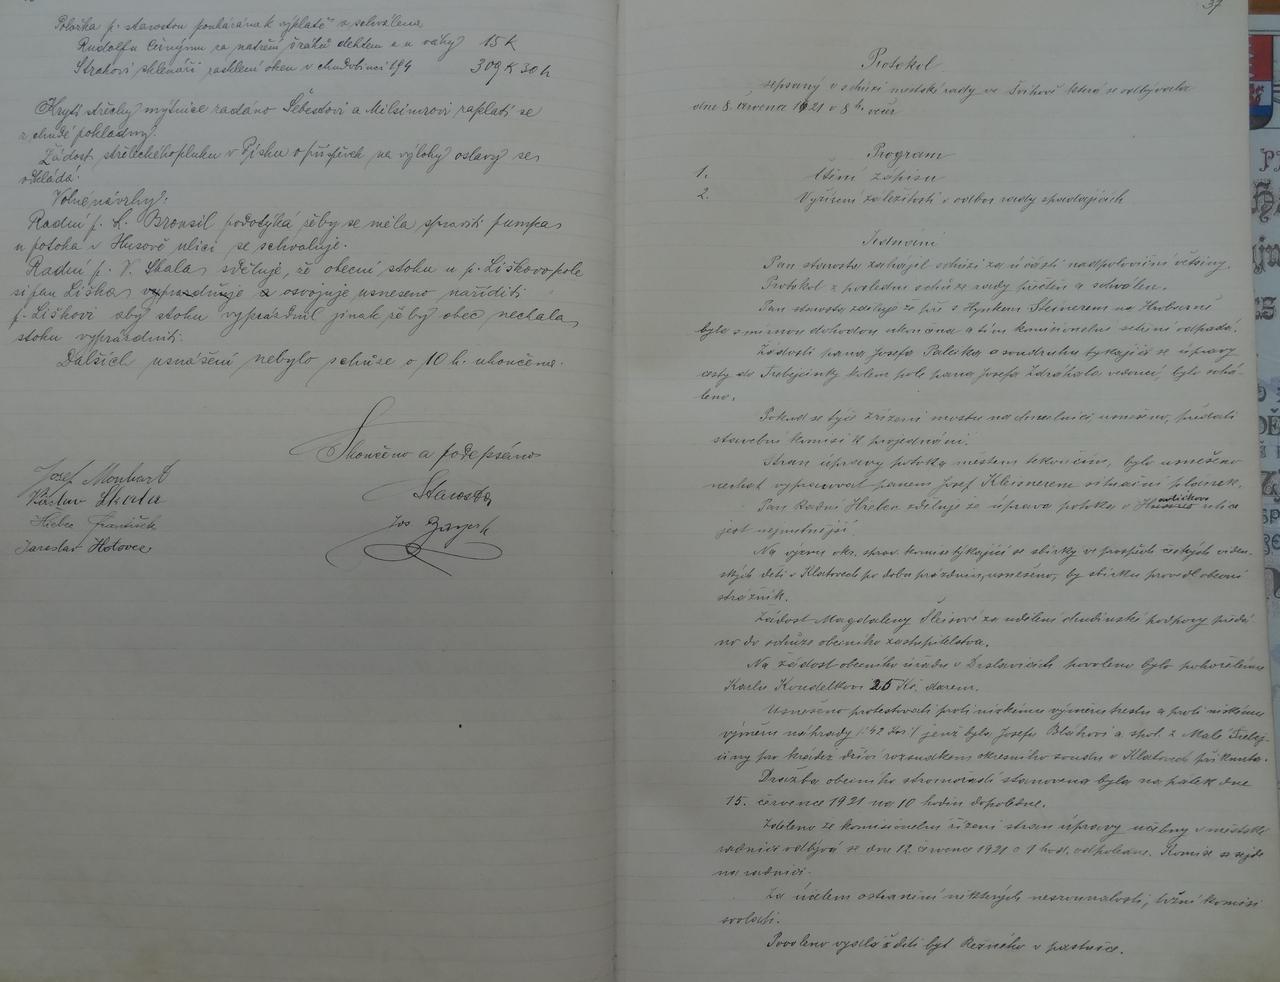 Položka p. starostou poukázána k výplatě a schválena
Rudolfu Černýmu za natření vrátů dehtem a u váhy 15 K
Strakovi sklenáři zasklení oken v chudobinci 194 309 K 30 h
Krytí střechy mýtnice zadáno Šebestovi a Milsimerovi zaplatí se
z chudé pokladny.
Žádost střeleckého pluku v Písku o příspěvek na výlohy oslavy se
odkládá.
Volné návrhy:
Radní p. L. Brousil podotýká že by se měla spraviti pumpa
u potoka v Husově ulici se schvaluje.
Radní p. V. Skala sděluje, že obecní stoku u p. Liškovo pole
si pan Liška osvojuje usneseno naříditi
p. Liškovi aby stoku vyprázdnil jinak že by obec nechala
stoku vyprázdniti.
Dalších usnášení nebylo schůze o 10 h. ukončena.
Skončeno a podepsáno
Josef Monhart
Václav Skala
Starosta
František
Jos
Jaroslav Hotovec
37
Protokol
sepsaný o schůzi městské rady ve Švihově která se odbývala
dne 8. července 1921 o 8 h. večer
Program
1. Čtení zápisu
2. Vyřízení záležitostí v odbor rady spadajících
Jednání
Pan starosta zahájil schůzi za účasti nadpoloviční většiny.
Protokol z poslední schůze rady přečten a schválen.
Pan starosta sděluje že při s Hynkem Steinerem na
byla smírnou dohodou ukončena a tím komisionelní šetření odpadá.
Žádosti pana Josefa Palečka a soudruhů týkající se úpravy
cesty do Třebejčinky kolem pole pana Josefa Zdráhala vedoucí, bylo schvá-
leno.
Pokud se týče zřízení mostu na chmelnici, usneseno, předati
stavební komisi k projednání.
Stran úpravy potoka městem tekoucím, bylo usneseno
nechat vypracovat panem Josef Kleisnerem situační plánek.
Pan Radní Hřebec sděluje že úprava potoka v ulici
jest nejnutnější.
Na výzvu okr. správ. komise týkající se sbírky ve prospěch českých víden-
ských dětí v Klatovech po dobu prázdnin, usneseno, by sbírku provedl obecní
strážník.
Žádost Magdaleny Šleisové za udělení chudinské podpory předá-
no do schůze obecního zastupitelstva.
Na žádost obecního úřadu v Drslavicích povoleno bylo pohořelému
Karlu Koudelkovi 25 Kč. darem.
Usneseno protestovati proti nízkému výměru trestu a proti nízkému
výměru náhrady jenž byla Josefu Bláhovi a spol. z Malé Třebej-
činy pro krádež dříví rozsudkem okresního soudu v Klatovech přiknuta.
Dražba obecního stromořadí stanovena byla na pátek dne
15. července 1921 na 10 hodin dopoledne.
Zděleno že komisionelní řízení stran úpravy učebny v městské
radnici odbývá se dne 12 července 1921 o 1 hod. odpoledne. Komise se sejde
na radnici.
Za účelem ostranění některých nesrovnalostí, tržní komisi
svolati.
Povoleno vydlážditi byt Řezného v pastušce.